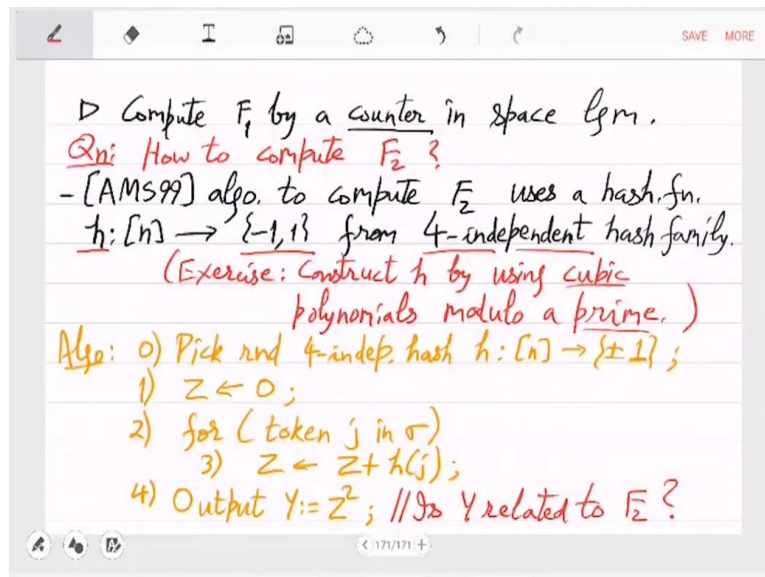 SAVE MORE
▷ Compute F₁ by a counter in space lgm.
Qn: How to compute F₂ ?
- [AMS99] algo. to compute F₂ uses a hash.fn.
h: [n] → {-1,1} from 4-independent hash family.
(Exercise: Construct h by using cubic
polynomials modulo a prime.)
Algo: 0) Pick rnd 4-indep. hash h: [n] → {±1};
1) Z ← 0;
2) for (token j in σ)
3) Z ← Z + h(j);
4) Output Y := Z²; // Is Y related to F₂ ?
< 171/171 +